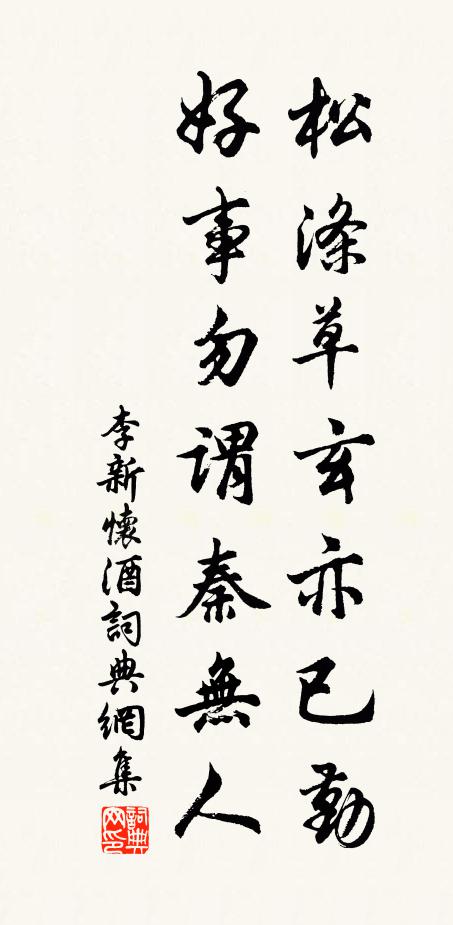 松滌草玄亦已勤
好事勿謂秦無人
李新懷酒詞典網集
詞典网印